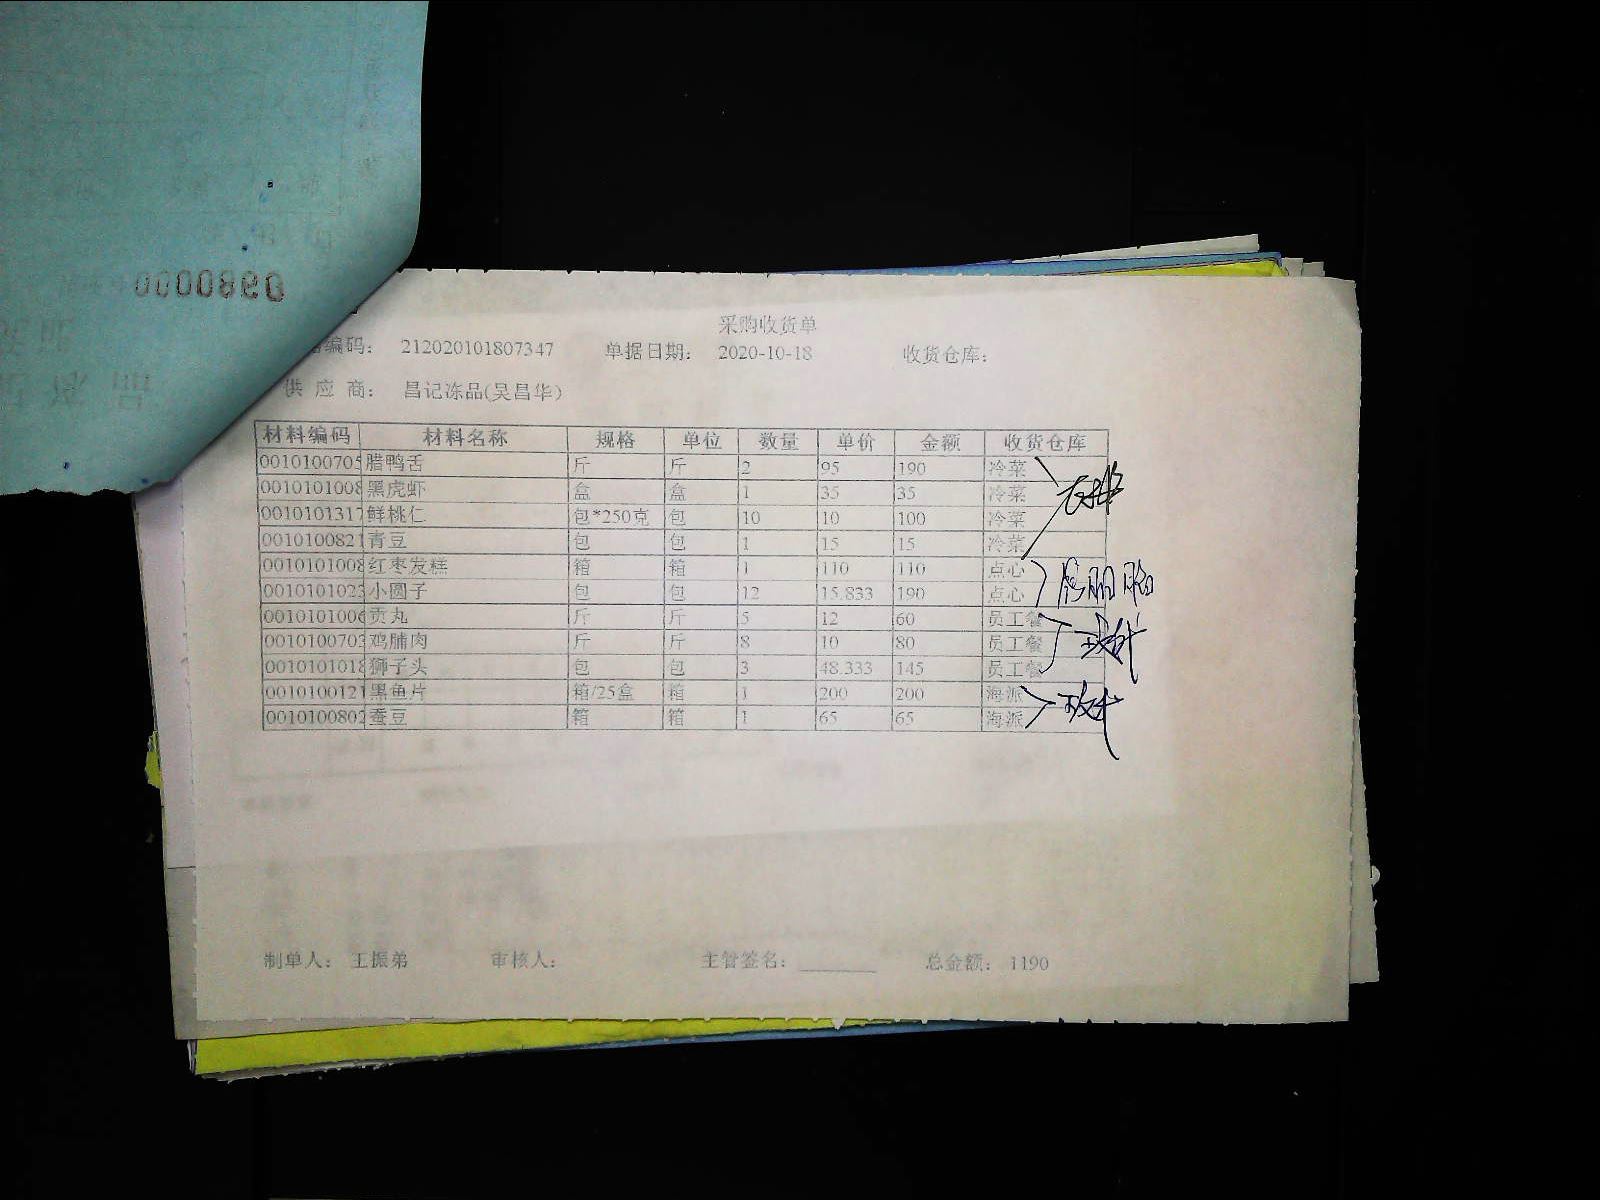 0000860
采购收货单
编码： 212020101807347 单据日期： 2020-10-18 收货仓库：
供应商： 昌记冻品(吴昌华)
材料编码 材料名称 规格 单位 数量 单价 金额 收货仓库
0010100705 腊鸭舌 斤 斤 2 95 190 冷菜
0010101008 黑虎虾 盒 盒 1 35 35 冷菜
0010101317 鲜桃仁 包*250克 包 10 10 100 冷菜
0010100821 青豆 包 包 1 15 15 冷菜
0010101008 红枣发糕 箱 箱 1 110 110 点心
0010101023 小圆子 包 包 12 15.833 190 点心
0010101006 贡丸 斤 斤 5 12 60 员工餐
0010100703 鸡脯肉 斤 斤 8 10 80 员工餐
0010101018 狮子头 包 包 3 48.333 145 员工餐
0010100121 黑鱼片 箱/25盒 箱 1 200 200 海派
0010100802 蚕豆 箱 箱 1 65 65 海派
制单人： 王振弟 审核人： 主管签名： 总金额： 1190